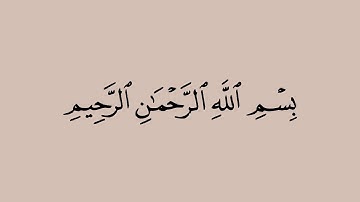 بِسْمِ ٱللَّهِ ٱلرَّحْمَـٰنِ ٱلرَّحِيمِ